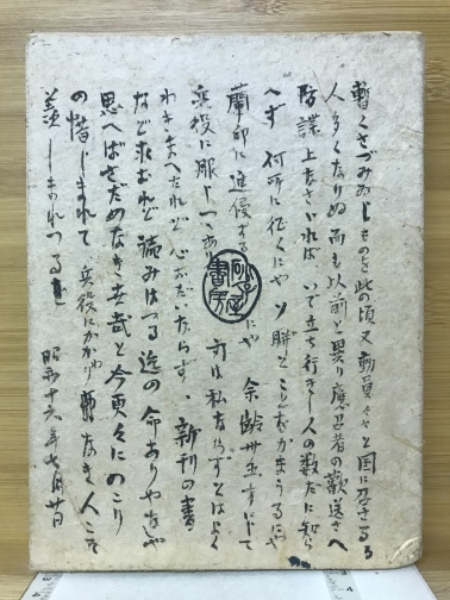 暫くさづみゐしものを此の頃又動員々々と国に召さるる
人多くなりぬ而も以前と異り應召者の歓送さへ
防諜上なさゞれば、いで立ち行きし人の数だに知ら
へず 何所に征くにや ソ聯とことをかまうるにや
蘭印に進侵する にや 余齢卅五才にして
兵役に服しつゝあり 対は私ならずとはよく
わきまへたれど心おだいならず、新刊の書
など求むれど読みはつる迄の命ありやなしや
思へばさだめなき世哉と今更々にのこり
の惜しまれて 兵役にかかわりなき人こそ
羨しまれつる 昭和十六年七月廿日
砂子屋書房